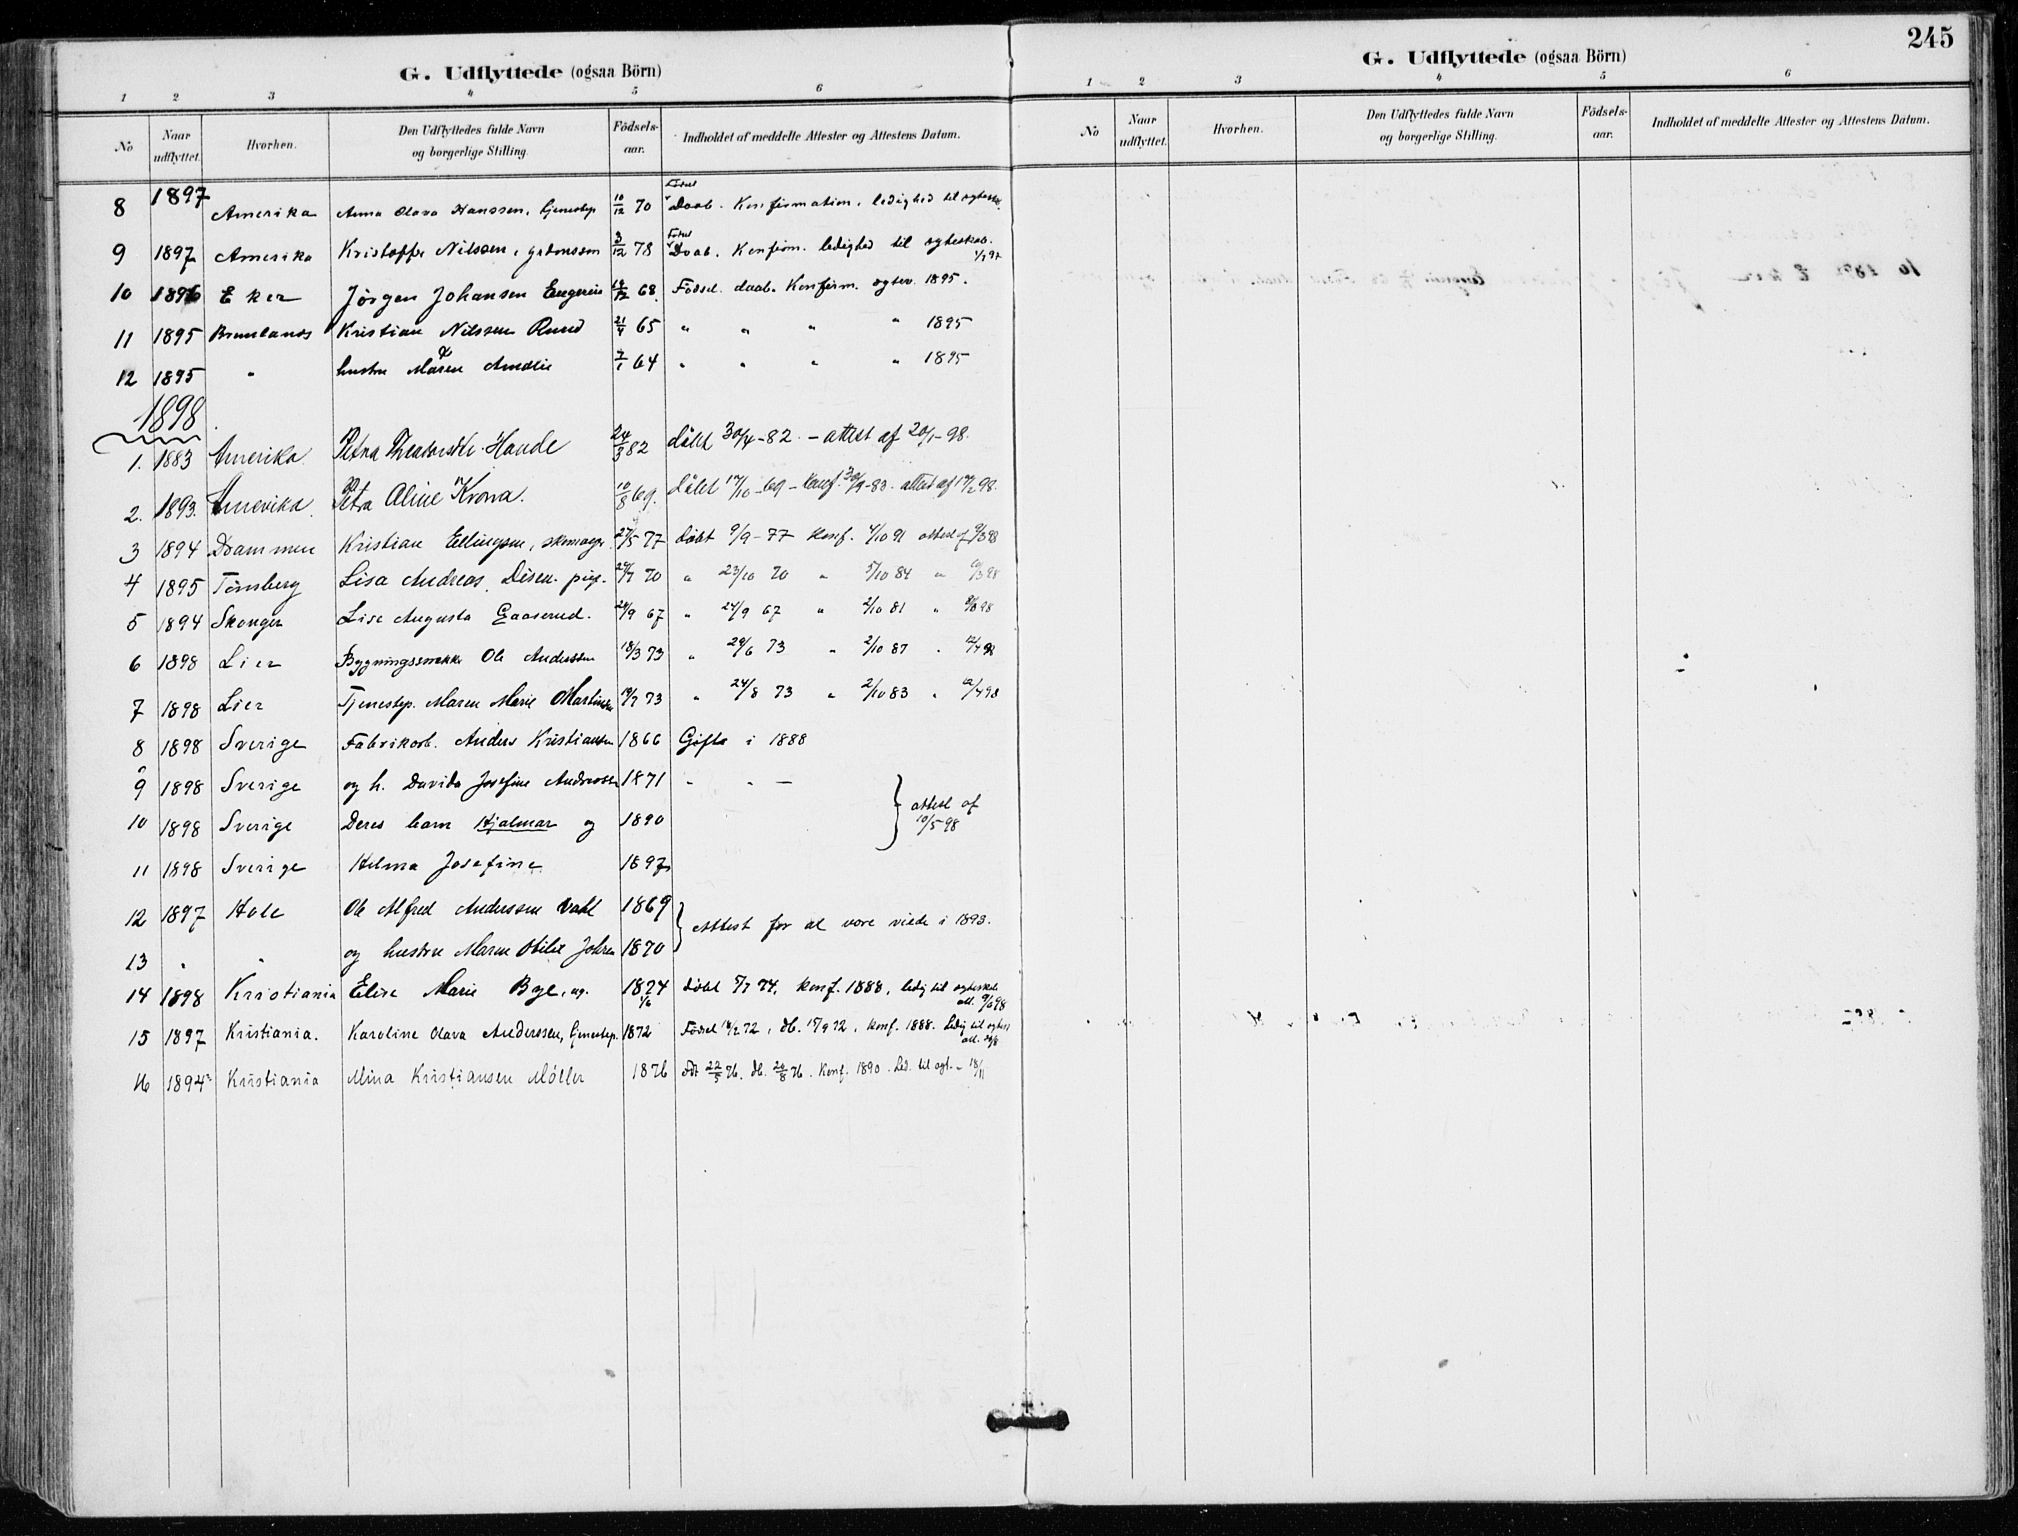 245
G. Udflyttede (ogsaa Börn)
1 2 3 4 5 6
No Naar udflyttet. Hvorhen. Den Udflyttedes fulde Navn og borgerlige Stilling. Födsels-aar. Indholdet af meddelte Attester og Attestens Datum.
8 1897 Amerika Anna Olava Hanssen, tjenestep 10/12 70 Födsel Daab. Konfirmation. ledighed til egtesk.
9 1897 Amerika Kristoffer Nilssen, grdmssøn 3/12 78 Födsel Daab. Konfirm. ledighed til egteskab.
10 1896 Eker Jörgen Johansen 68. Födsel. daab. Konfirm. 1895.
11 1895 Brunlanæs Kristian Nilssen Ruud 21/4 65 " " " " 1895
12 1895 " hustru Maren Amalie 64 " " " " 1895
1898.
1. 1883 Amerika Petra Haude 24/3 82 döbt 30/4-82 - attest af 20/1-98.
2. 1893. Amerika. Petra Aline Krona. 10/8 69. döbt 17/10-69 - konf. 30/9-83. attest af 98.
3 1894 Drammen Kristian Ellingsen, skomager 27/5 77 döbt 9/9-77 konf. 4/10 91 attest af 98
4 1895 Tönsberg Lisa Andreas. Disen. pige. 70 " 23/10 70 " 5/10 84 " 98
5 1894 Skouger Lise Augusta Gaaserud. 67 " 24/9 67 " 2/10 81 " 98
6 1898 Lier Bygningssnekker Ole Anderssen 18/3 73 " 29/6 73 " 2/10 87 " 12/4 98
7 1898 Lier Tjenestep. Maren Marie Martinsen 19/7 73 " 24/8 73 " 2/10 83 " 12/4 98
8 1898 Sverige Fabrikarb. Anders Kristiansen 1866 Gifte i 1888
9 1898 Sverige og h. Davida Josefine Andreassen 1871 - - -
10 1898 Sverige Deres barn Hjalmar og 1890 attest af 10/5 98
11 1898 Sverige Hilma Josefine 1897
12 1897 Hole Ole Alfred Anderssen Vahl 1869 Attest for at være viede i 1893.
13 " " og hustru Maren Otilie Johsen 1870
14 1898 Kristiania Elise Marie Bye, ug. 1874 döbt 5/7 74. konf. 1888, ledig til egtesk. att. 9/6 98
15 1897 Kristiania. Karoline Olava Anderssen, tjenestep. 1872 Födsel 72, db. 15/9 72, konf. 1888. Ledig til egtesk att.
16 1894 Kristiania Mina Kristiansen Möller 1876 Fdt 22/5 76. db. 20/8 76. Konf. 1890. Led. til egt. - 18/11
G. Udflyttede (ogsaa Börn)
1 2 3 4 5 6
No Naar udflyttet. Hvorhen. Den Udflyttedes fulde Navn og borgerlige Stilling. Födsels-aar. Indholdet af meddelte Attester og Attestens Datum.